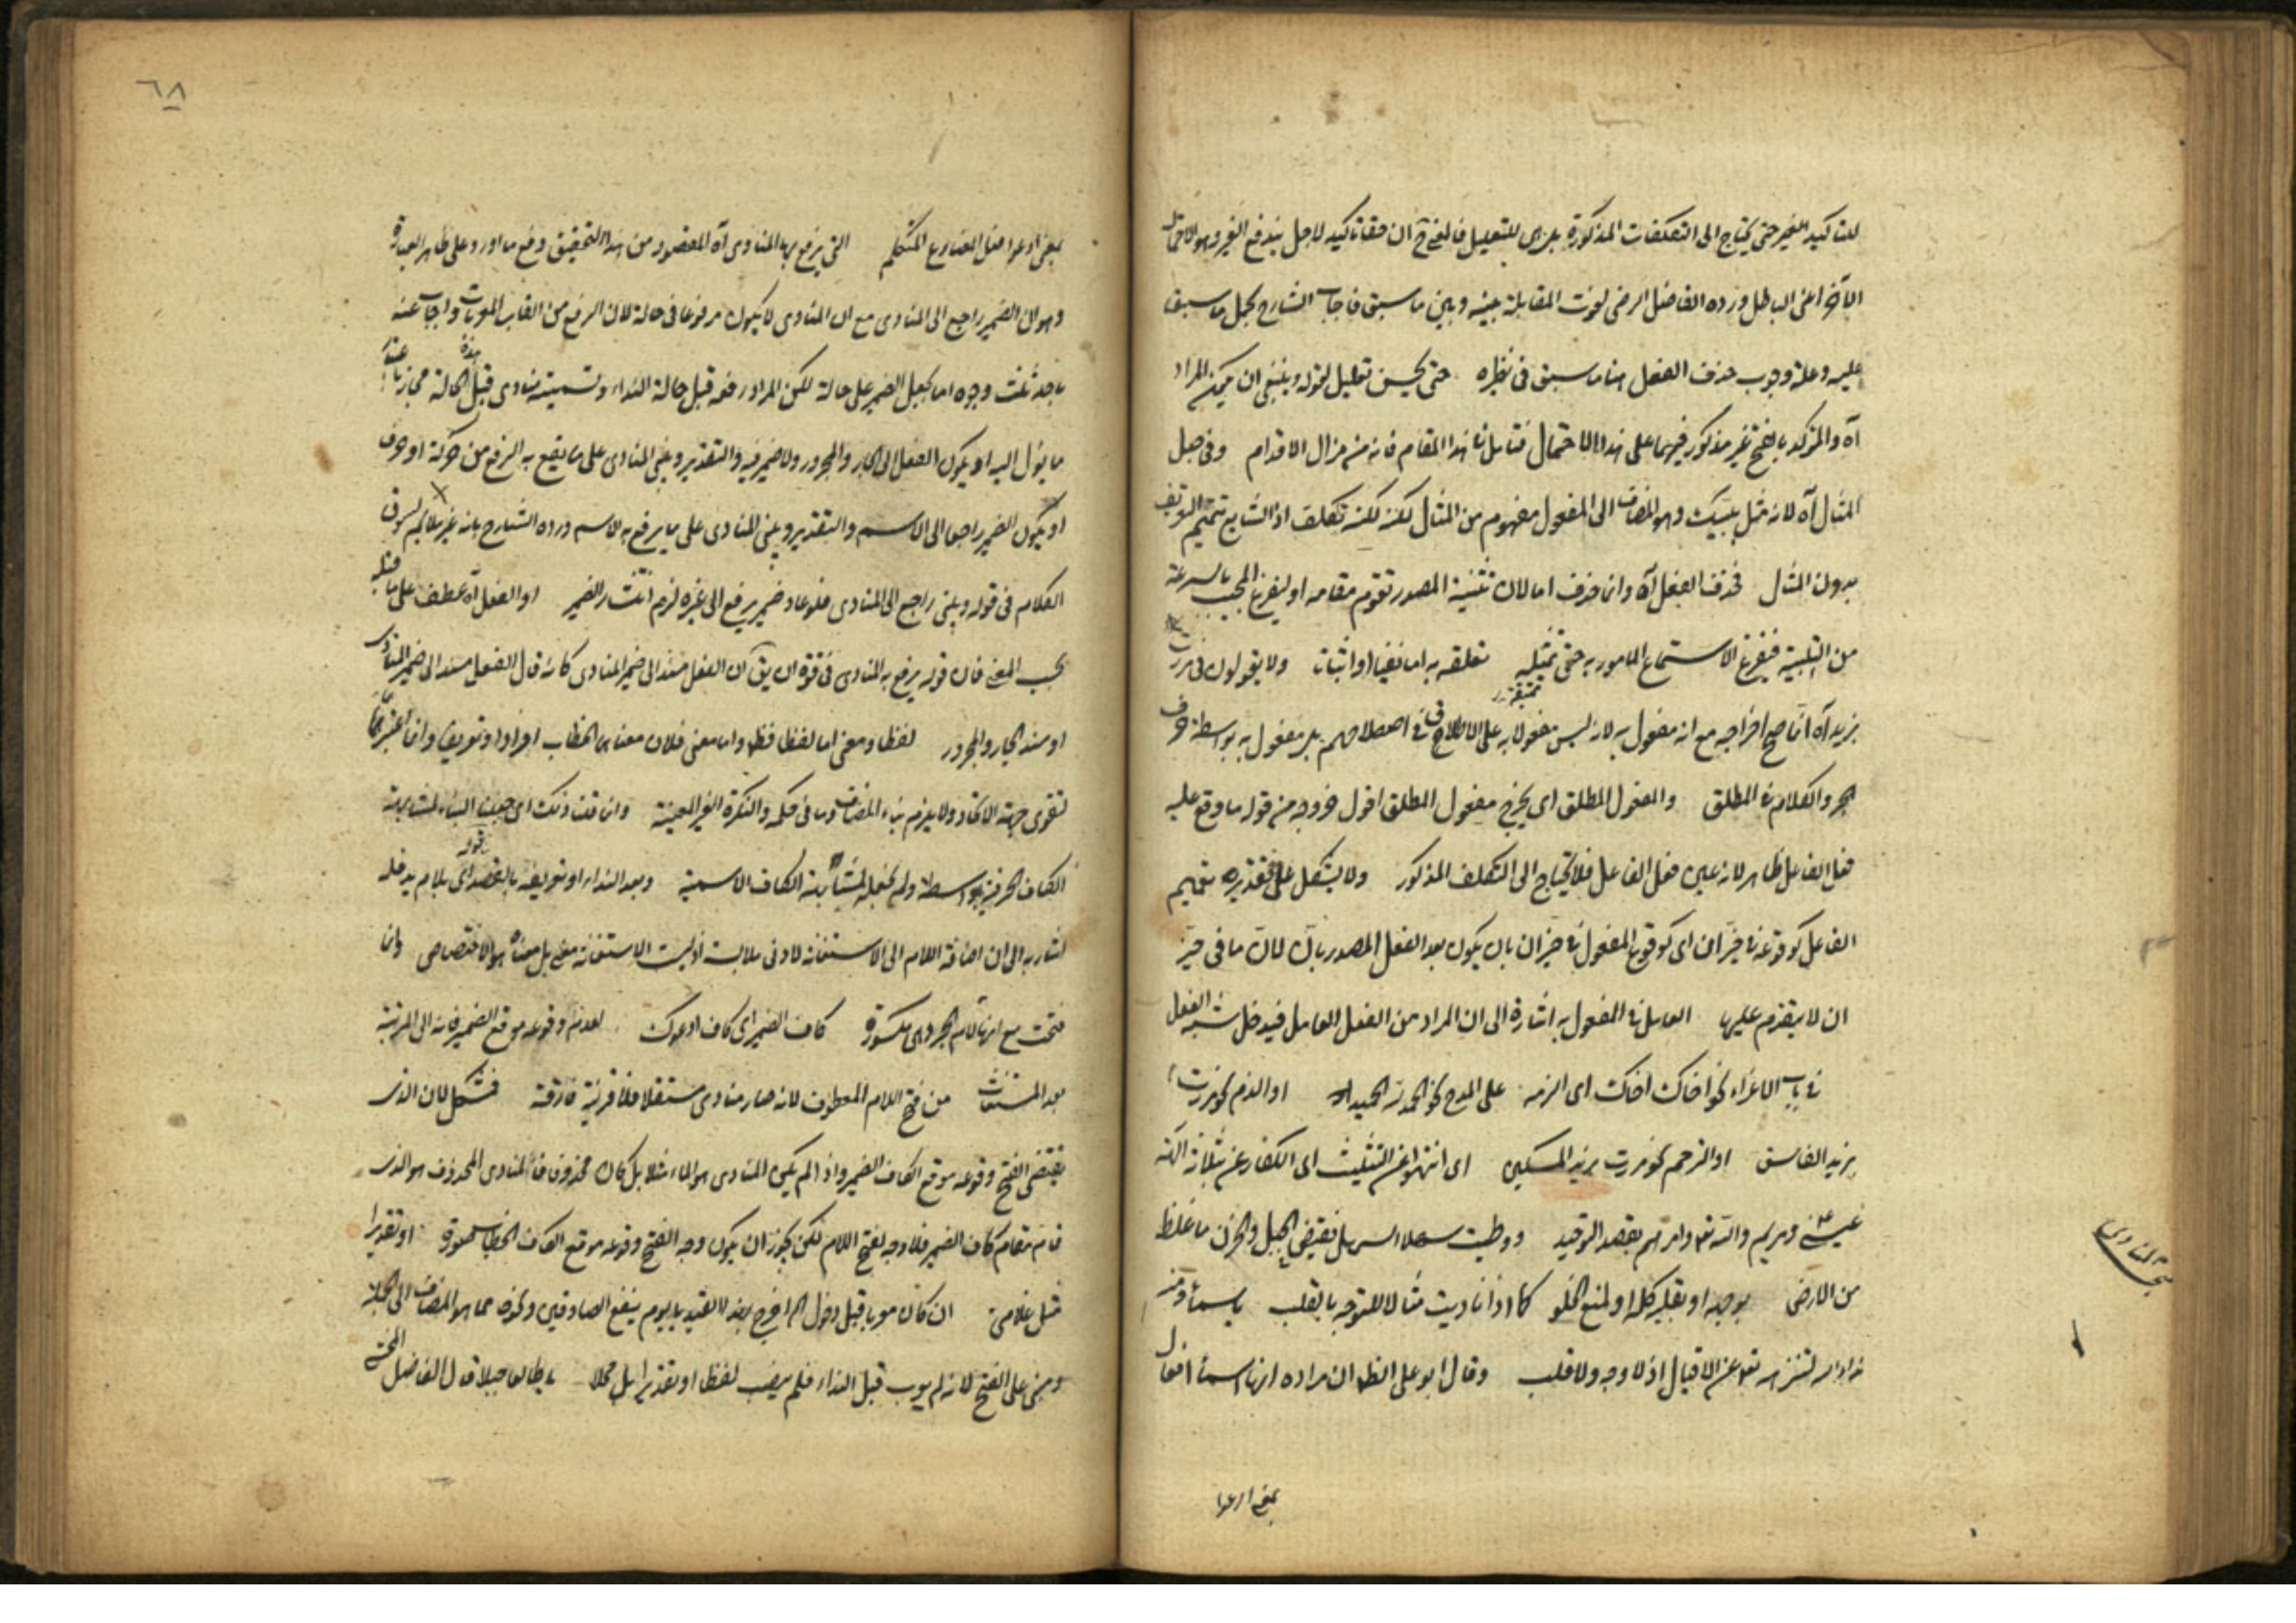 للتاكيد الغير حتى يحتاج الى التكلفات المذكورة بل هى للتعليل فالمعنى ح ان حقا تاكيد لاجل يندفع الغير وهو الاحتمال
الآخر اعنى الباطل ورده الفاضل الرضى لفوت المقابلة بينه وبين ما سبق فاجاب الشارح بحمل ما سبق
عليه وعلة وجوب حذف الفعل هنا ما سبق فى نظيره حتى يحسن تعليل لقوله وينبغى ان يمكن المراد
آه والمؤكد بالفتح غير مذكور فيهما على هذا الاحتمال فتامل فى هذا المقام فانه من مزال الاقدام وفى جعل
المثال آه لانه مثل بلبيك وهو المضاف الى المفعول مفهوم من المثال لكنه تكلف اذ الشايع تتميم التعريف
بدون المثال فحذف الفعل آه وانما حذف اما لان تثنية المصدر تقوم مقامه او ليفرغ المجيب بالسرعة
من التلبية فيفرغ لاستماع المامور به حتى يمتثله تعلقه به اما نفيا او اثباتا ولا يقولون فى مررت
بزيد آه انما صح اخراجه مع انه مفعول به لانه ليس مفعولا به على الاطلاق فى اصطلاحهم بل مفعول به بواسطة حرف
الجر والكلام فى المطلق والمفعول المطلق اى يخرج مفعول المطلق اقول خروجه من قوله ما وقع عليه
فعل الفاعل ظاهر لانه عين فعل الفاعل فلا يحتاج الى التكلف المذكور ولا يشكل على تقديره تعميم
الفاعل كوقوعه فى حيز ان اى كوقوع المفعول فى حيز ان بان يكون بعد الفعل المصدر بان لان ما فى حيز
ان لا يتقدم عليها العامل فى المفعول به اشارة الى ان المراد من الفعل العامل فيدخل شبه الفعل
فى باب الاغراء نحو اخاك اخاك اى الزمه على المدح نحو الحمد لله الحميد او الذم نحو مررت
بزيد الفاسق او الترحم نحو مررت بزيد المسكين اى انتهوا عن التثليث اى الكفار عن ثلاثة الهة
عيسى ومريم والله تعالى وامرهم بقصد التوحيد ووطيت سهلا السهل نقيض الجبل والحزن ما غلظ
من الارض بوجهه او بقلبه كلمة او لمنع الخلو كما اذا ناديت مثالا للتوجه بالقلب يا سماء ومنه
نداء الله لتنزهه تعالى عن الاقبال اذ لا وجه ولا قلب وقال ابو على الظاهر ان مراده انها اسماء افعال
بمعنى ادعوا
٦٨
بمعنى ادعوا مثل المضارع المتكلم التى يرفع بها المنادى آه المقصود من هذا التحقيق دفع ما اورد على ظاهر العبارة
وهو ان الضمير راجع الى المنادى مع ان المنادى لا يكون مرفوعا فى حالة لان الرفع من القاب المعربات واجاب عنه
باحد ثلث وجوه اما بجعل الضمير على حالة لكن المراد رفعه قبل حالة النداء وتسميته منادى قبل هذه الحالة مجاز باعتبار
ما يئول اليه او يكون الفعل الى الجار والمجرور ولا ضمير فيه والتقدير ويبنى المنادى على ما يقع به الرفع من حركة او حرف
او يكون الضمير راجعا الى الاسم والتقدير ويبنى المنادى على ما يرفع به الاسم ورده الشارح بانه غير ملايم لسوق
الكلام فى قوله ويبنى راجع الى المنادى فلو عاد ضمير يرفع الى غيره لزم انتشار الضمير او الفعل آه عطف على ما قبله
بحسب المعنى فان قوله يرفع به المنادى فى قوة ان يق ان الفعل مسند الى ضمير المنادى كانه قال الفعل مسند الى ضمير المنادى
او مسند الجار والمجرور لفظا ومعنى اما لفظا فظاهر واما معنى فلان معناه الخطاب افرادا وتعريفا وانما اعتبرهما
لتقوى جهة الاتحاد ولا يلزم بناء المضاف وما فى حكمه والنكرة الغير المعينة وانما قلنا ذلك اى جعلنا البناء لمشابهة
الكاف الحرفية بواسطة ولم نجعله لمشابهة الكاف الاسمية وبعد النداء او تعريفه بالقصد اى بلام يدخله
اشار به الى ان اضافة اللام الى الاستغاثة لادنى ملابسة اذ ليست الاستغاثة معنى بل معناه هو الاختصاص وانما
فتحت مع انها لام الجر وهى مكسورة كاف الضمير اى كاف ادعوك لعدم وقوعه موقع الضمير فانه الى المرتبة
بعد المستغاث من فتح اللام المعطوف لانه صار منادى مستقلا فلا قرينة فارقة فمشكل لان الذى
يقتضى الفتح وقوعه موقع الكاف الضمير واذا لم يكن المنادى هو الماء مثلا بل كان محذوفا فالمنادى المحذوف هو الذى
قام مقام كاف الضمير فلا وجه لفتح اللام لكن يجوز ان يكون وجه الفتح وقوعه موقع الكاف الخطاب صورة او تقديرا
مثل غلامى ان كان معربا قبل دخول اخرج بهذا القيد يا يوم ينفع الصادقين ونحوه مما هو المضاف الى الجملة
ومبنى على الفتح لانه لم يعرب قبل النداء فلم ينصب لفظا او تقديرا بل محلا يا طالعا جبلا قال الفاضل المحشى